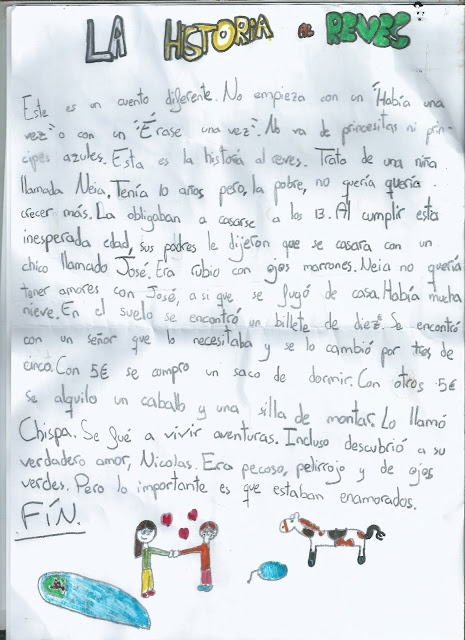 LA HISTORIA AL REVES
Este es un cuento diferente. No empieza con un "Había una
vez" o con un "Érase una vez". No va de princesitas ni prín-
cipes azules. Esta es la historia al reves. Trata de una niña
llamada Neia. Tenía 10 años pero, la pobre, no quería quería
crecer más. La obligaban a casarse a los 13. Al cumplir esta
inesperada edad, sus padres le dijeron que se casara con un
chico llamado José. Era rubio con ojos marrones. Neia no quería
tener amores con José, a si que se fugó de casa. Había mucha
nieve. En el suelo se encontró un billete de diez€. Se encontró
con un señor que lo necesitaba y se lo cambió por tres de
cinco. Con 5€ se compro un saco de dormir. Con otros 5€
se alquilo un caballo y una silla de montar. Lo llamó
Chispa. Se fué a vivir aventuras. Incluso descubrió a su
verdadero amor, Nicolas. Era pecoso, pelirrojo y de ojos
verdes. Pero lo importante es que estaban enamorados.
FÍN.